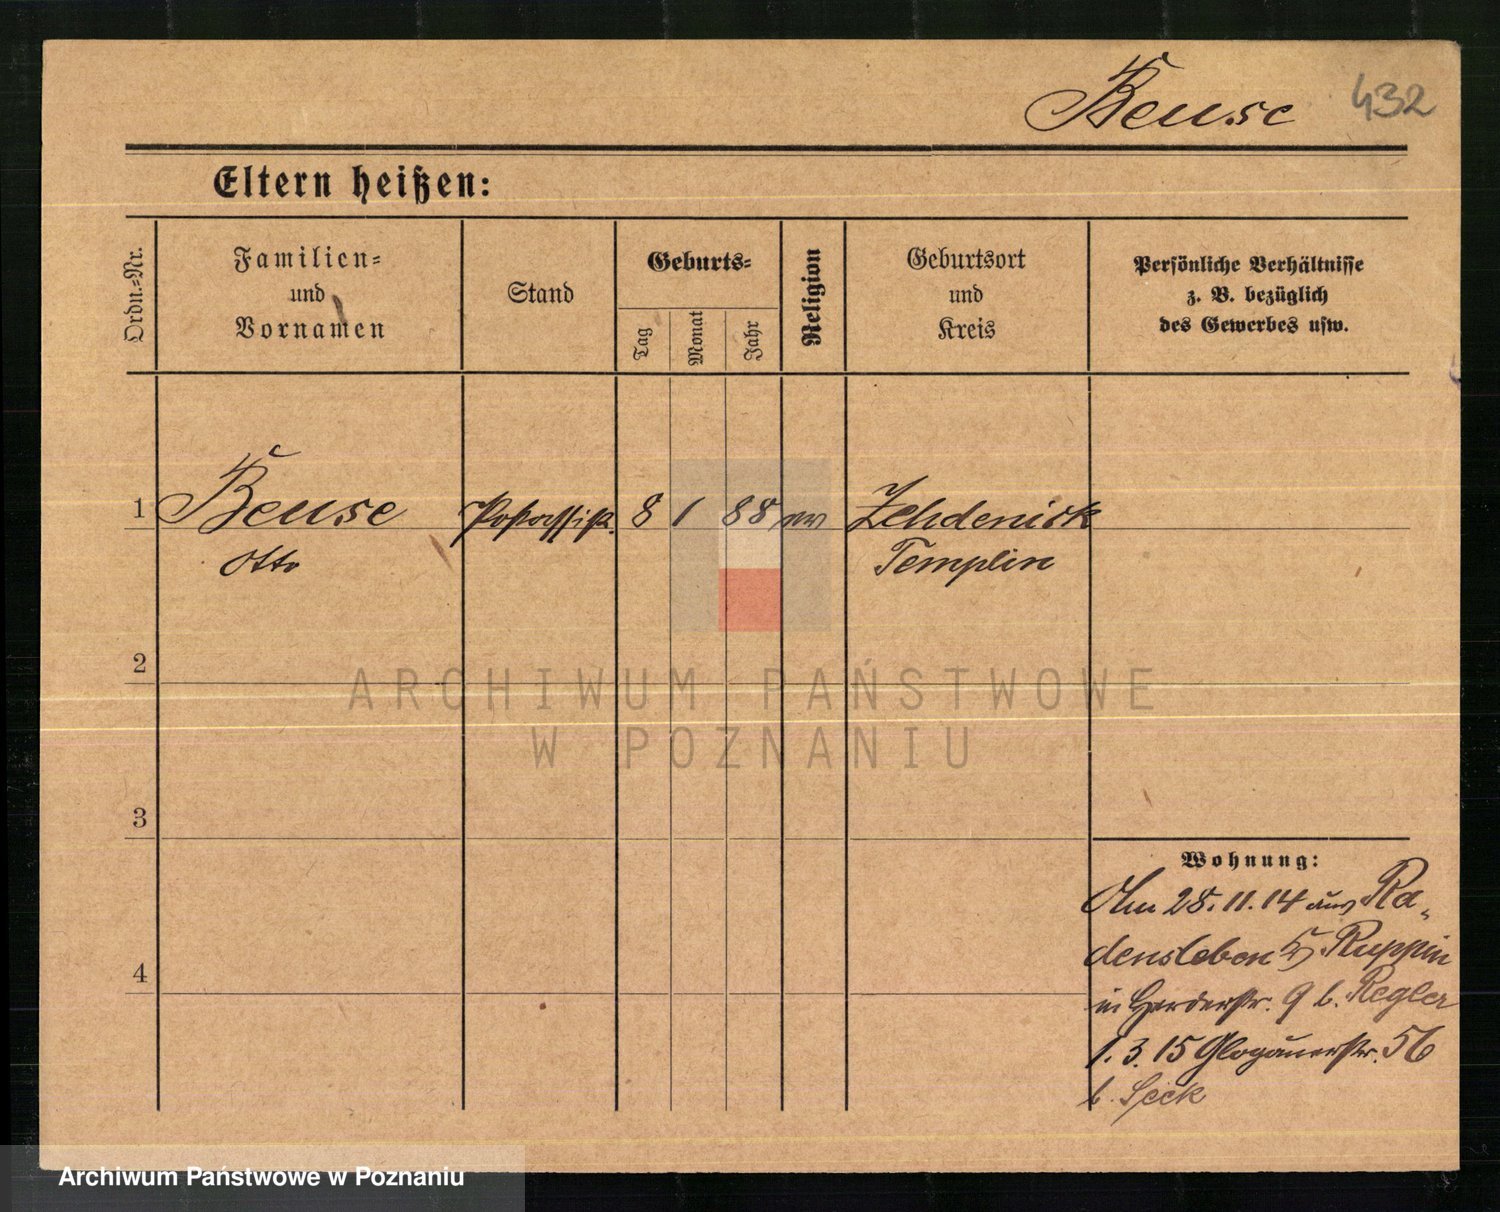 Beuse 432
Eltern heißen:
Ordn.-Nr.
Familien-
und
Vornamen
Stand
Geburts-
Tag
Monat
Jahr
Religion
Geburtsort
und
Kreis
Persönliche Verhältnisse
z. B. bezüglich
des Gewerbes usw.
1 Beuse 8 1 88 ev Zehdenick
Otto Templin
2
3
4
Wohnung:
Am 28.11.14 aus Ra-
densleben Ruppin
in Harderstr. 9 b. Regler
1.3.15 Glogauerstr. 56
b. Seck
ARCHIWUM PAŃSTWOWE
W POZNANIU
Archiwum Państwowe w Poznaniu